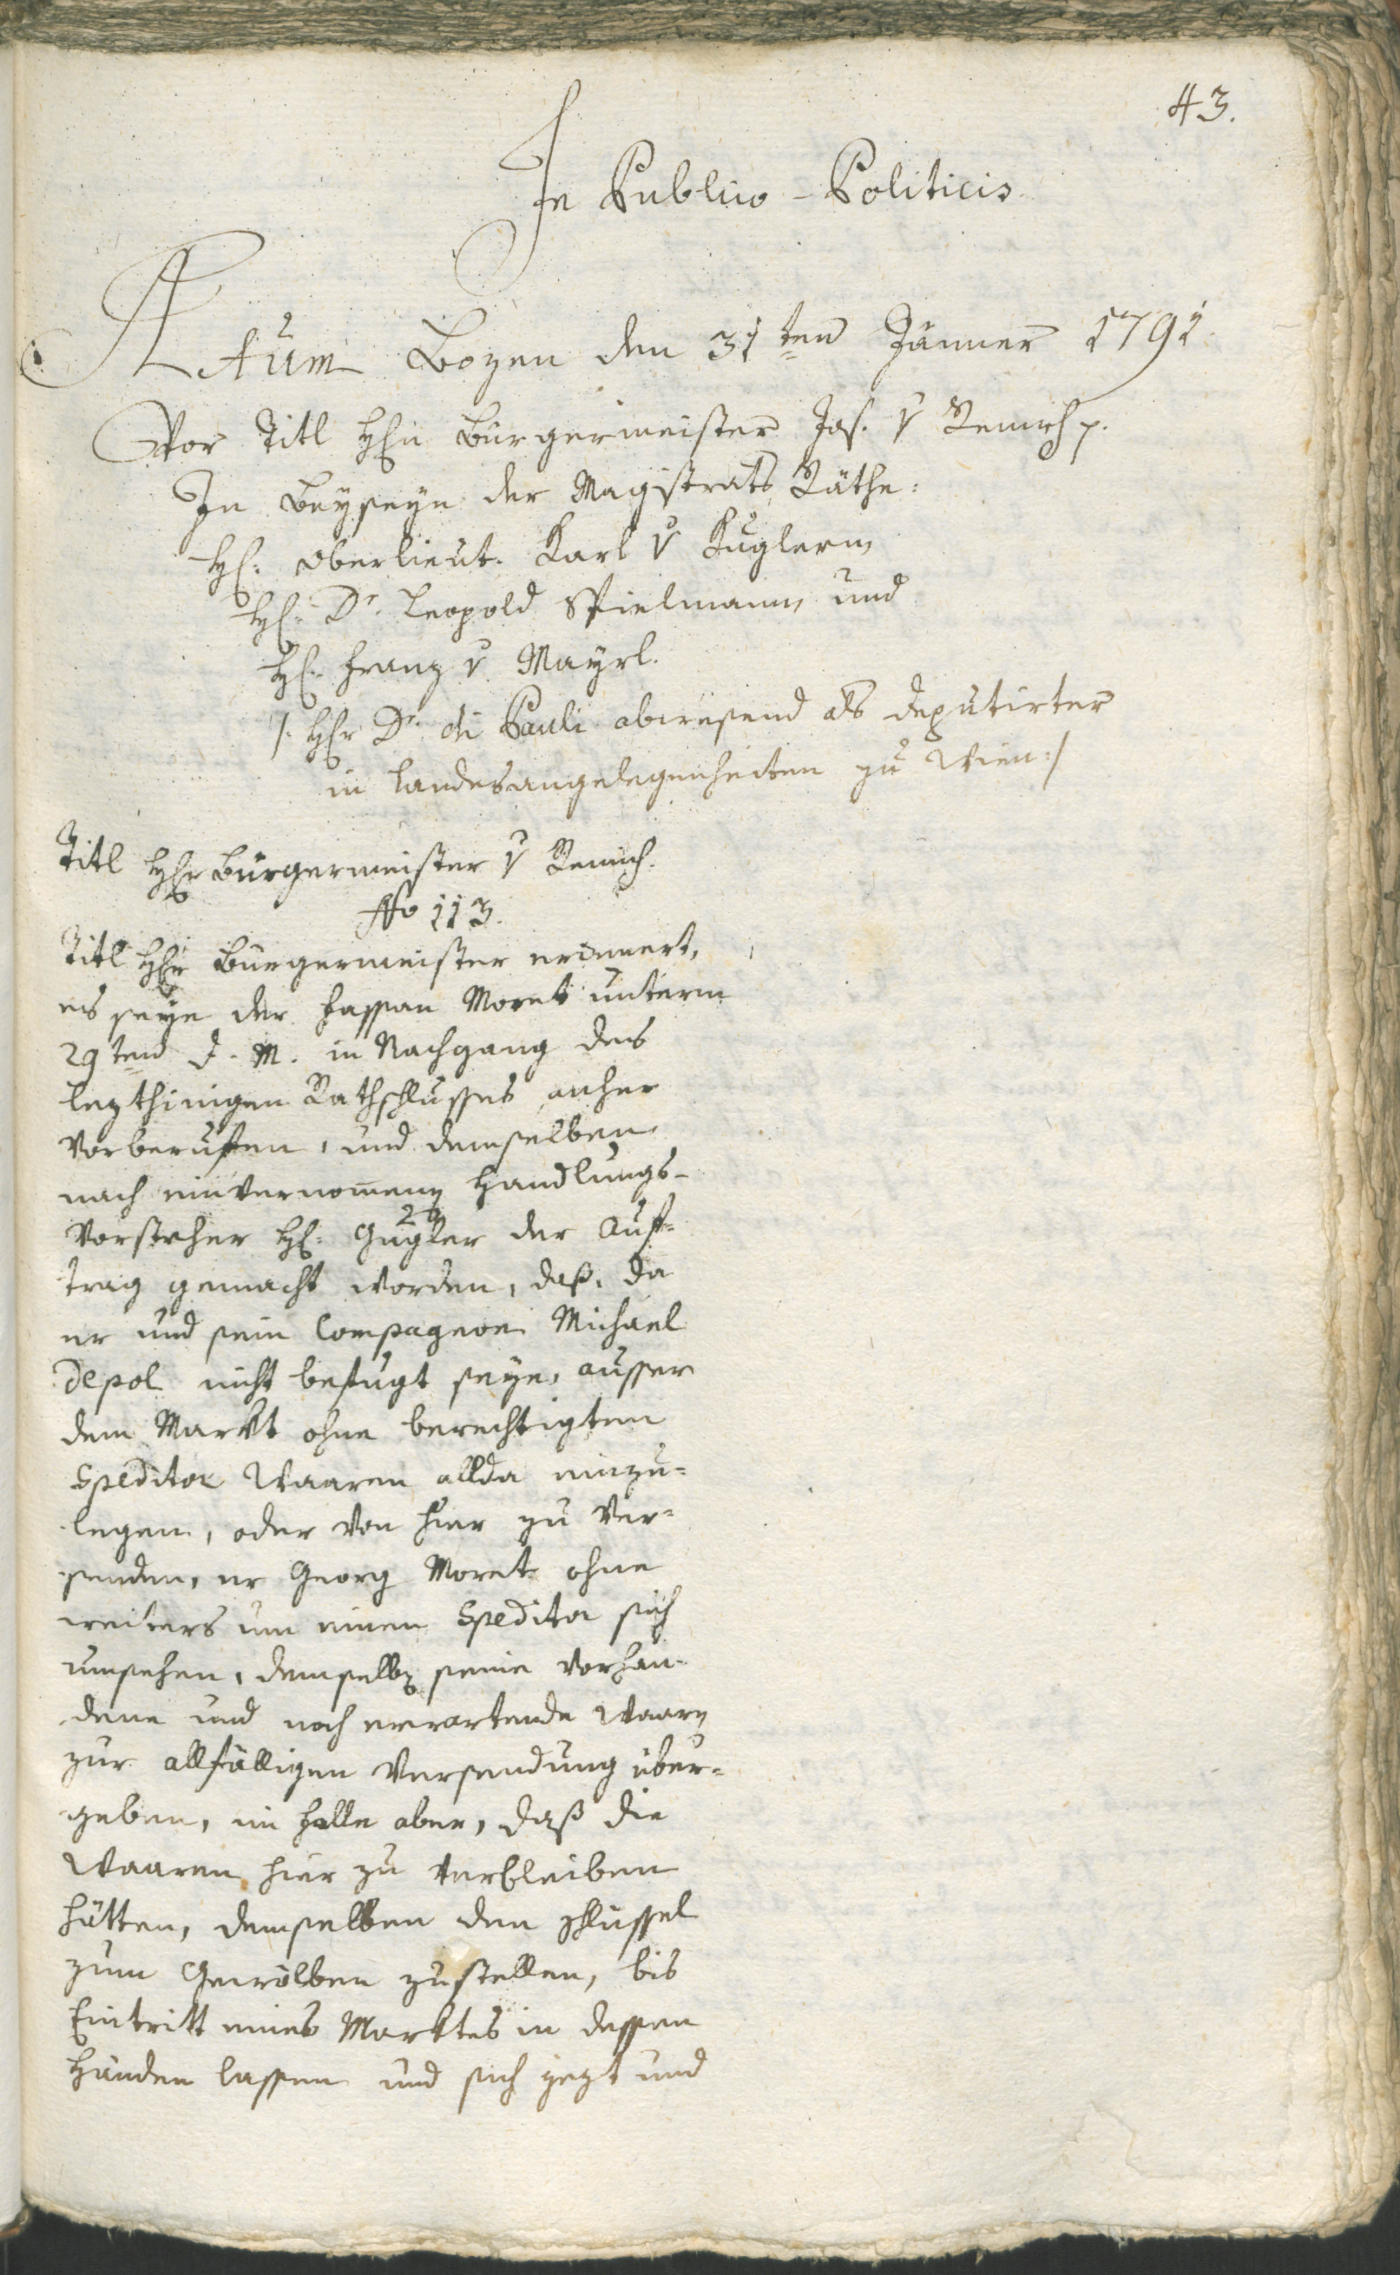 43.
In Publico-Politicis
Actum Bozen den 31ten Jänner 1791
Vor Titl Hh Bürgermeister Jos. v Remich p.
In Beyseyn der Magistrats Räthe:
H: Oberlieut. Karl v Kuglern
H: Dr. Leopold Spielmann und
H: Franz v Mayrl.
/: Hr Dr. di Pauli abwesend als deputirter
in Landesangelegenheiten zu Wien :/
Titl Hr Bürgermeister v Remich.
No 113.
Titl Hr Bürgermeister erinnert,
es seye der Fassan Moret unterm
29ten d. M. in Nachgang des
lezthinigen Rathschlusses anher
vorberuffen, und demselben
nach einvernomenen Handlungs-
Vorsteher H: Gugler der Auf-
trag gemacht worden, daß, da
er und sein Compagnon Michael
Depol nicht befugt seye, ausser
dem Markt ohne berechtigten
Speditor Waaren allda einzu-
legen, oder von hier zu ver-
senden, er Georg Moret ohne
weiters um einen Speditor sich
umsehen, demselben seine vorhan-
dene und noch erwartende Waaren
zur allfälligen Versendung über-
geben, im Falle aber, daß die
Waaren hier zu verbleiben
hätten, demselben den Schlüssel
zum Gewölben zustellen, bis
Eintritt eines Marktes in dessen
Händen lassen und sich jezt und